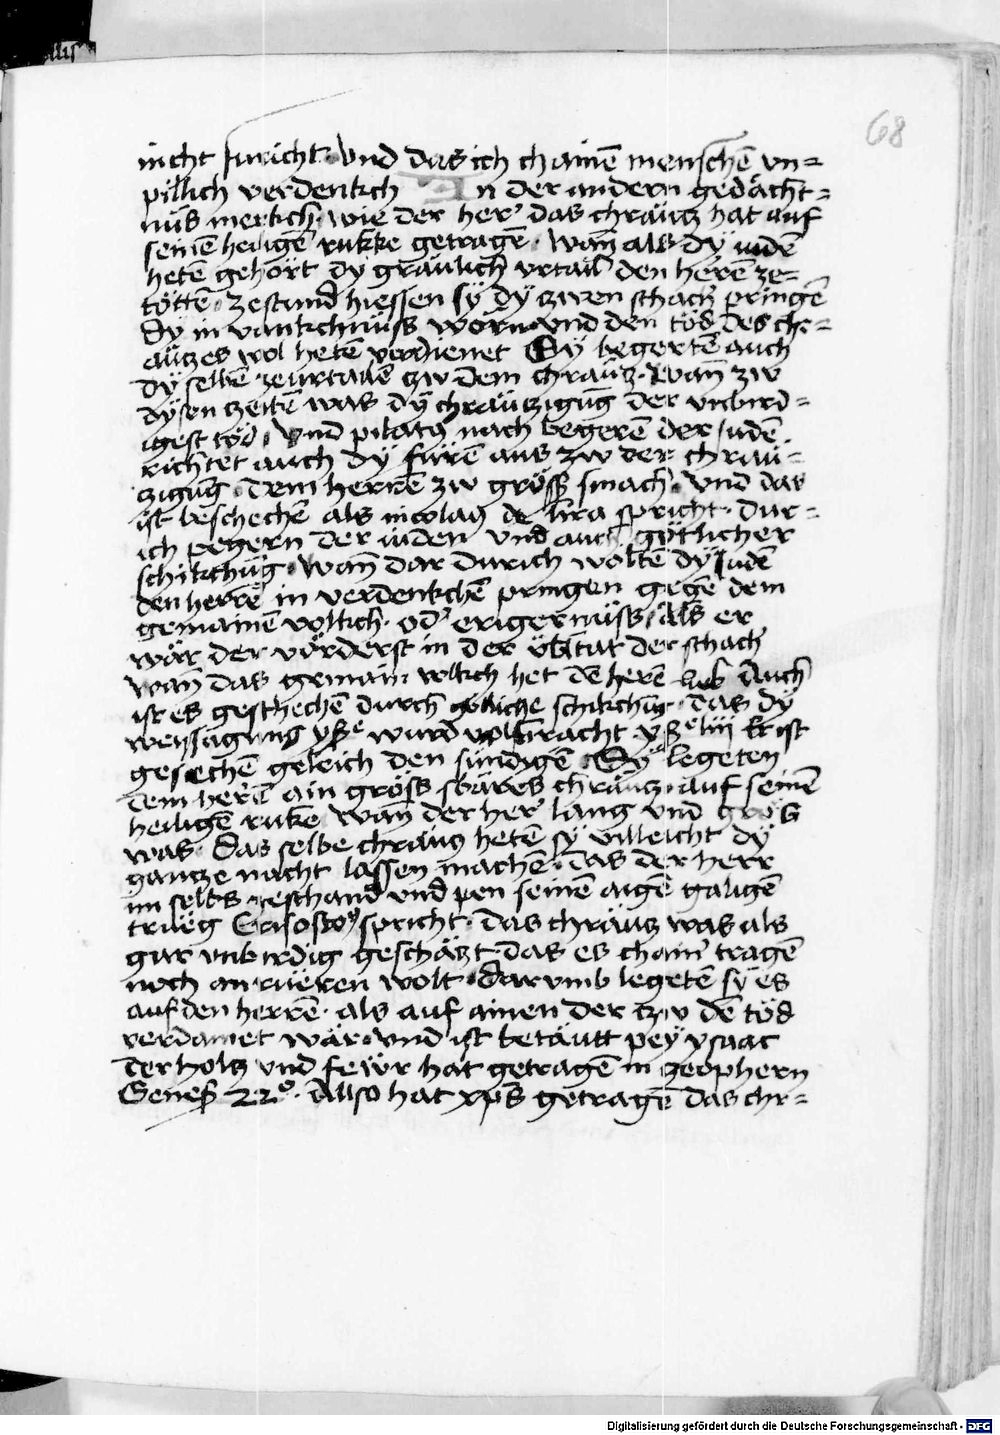 68
nicht furicht. Und das ich chainē menschē vn=
pillich verdenkch In der andern gedächt=
nüs merkch. wie der her' das chräutz hat auf
seinē heiligē rukke getragē. wan̄ als dÿ iudē
heten gehört dÿ gräulich vrtail den herrē ze=
tötten. zestund hiessen sÿ dÿ zwen schach' pringē
dÿ in vankchnüss worn. vnd den tod des chr=
äutzes wol hetē verdienet Sÿ begertē auch
dÿ selbē zeurtailē zw dem chräutz. wan̄ zw
dÿsen zeitē was dÿ chräutzigūg der vnbird=
igest töd. Und pilatꝫ nach begerē der iudē
richtet auch dÿ fürē aus zw der chräu=
tzigūg. dem herrē zw gröss smach. Und das
ist beschechē als nicolaꝫ de lira spricht. dur=
ich pegern der iuden vnd auch götlicher
schikchūg. wan̄ dar durich woltē dÿ iudē
den herrē in verdenkchē pringen gegē dem
gemainē volkch. od' erigernüss, als er
wär der vörderst in der übltat der schach'
wan̄ das gemain volkch het dē herē lieb Auch
ist es geschechē durch götliche schikchūg. das dÿ
weyssagung yse wurd volbracht yse liii Er ist
gesechē geleich den sündigē. Sÿ legeten
dem herē ain gröss swäres chräutz auf seinē
heiligē ruke wan̄ der her' lang vnd gros
was. das selbe chräutz hetē sÿ villeicht dÿ
gantze nacht lassen machē. das der herr
im selbs geschand vnd pen seinē aigē galigē
trueg Crisosto9 spricht. das chräutz was als
gar vnbirdig geschätzt das es chain' tragē
noch anrüeren wolt. darumb legetē sÿ es
auf den herrē. als auf ainen der zw dē töd
verdamet wär. vnd ist betäutt peÿ ysaac
der holtz vnd fewr hat getragē in zeophern
Genes 22º. Allso hat xps getragē das chr=
Digitalisierung gefördert durch die Deutsche Forschungsgemeinschaft - DFG